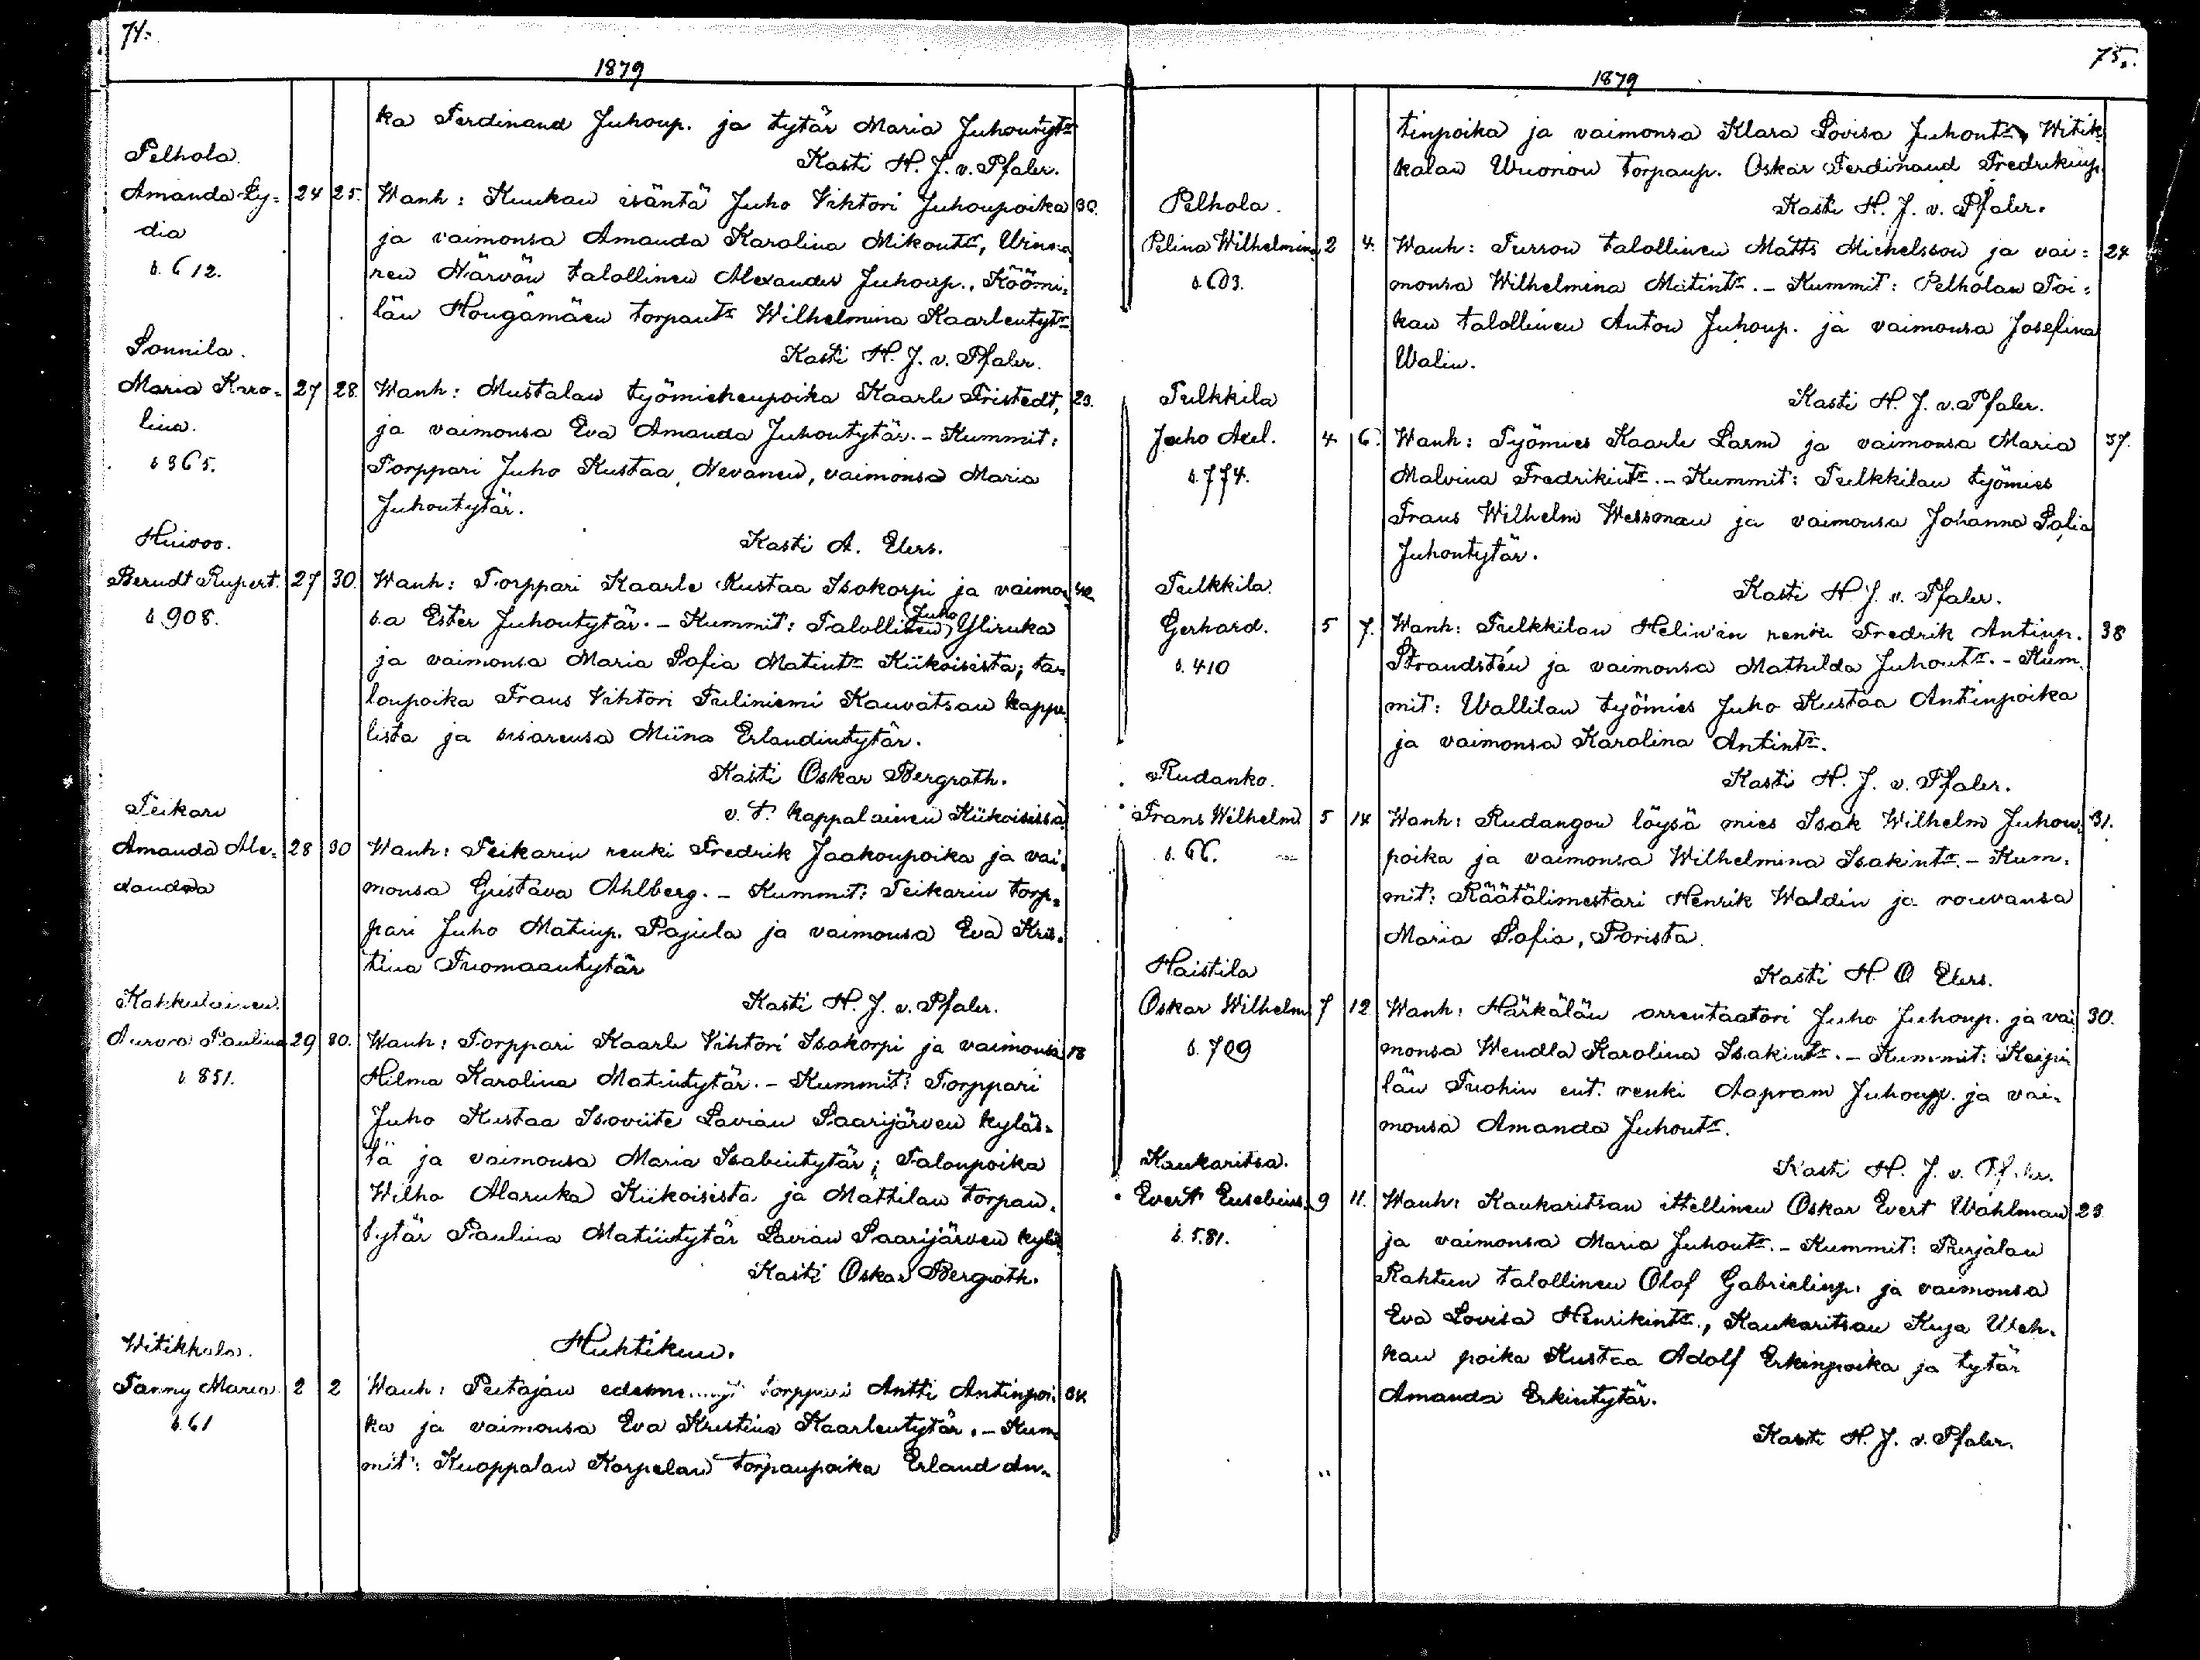 74.
1879
ka Ferdinand Juhoup. ja tytär Maria Juhontytr
Kasti H. J. v. Pfaler.
Pelhola.
Amanda Ly= 24 25. Wanh: Kuukan isäntä Juho Vihtori Juhonpoika 30.
dia ja vaimonsa Amanda Karolina Mikontr,
s. 612. ren Närvön talollinen Alexander Juhonp., Köömi=
län Hongamäen torpantr Wilhelmina Kaarlentytr
Kasti H. J. v. Pfaler.
Sonnila.
Maria Karo= 27 28. Wanh: Mustalan työmiehenpoika Kaarle Fristedt, 23.
lina. ja vaimonsa Eva Amanda Juhontytär. - Kummit:
s 365. Torppari Juho Kustaa Nevanen, vaimonsa Maria
Juhontytär.
Kasti A. Elers.
Huivoo.
Berndt Rupert. 27 30. Wanh: Torppari Kaarle Kustaa Isokorpi ja vaimon= 40
s. 908. sa Ester Juhontytär. - Kummit: Talollinen Juho Yliruka
ja vaimonsa Maria Sofia Matintr Kiikoisista; ta=
lonpoika Frans Vihtori Tuliniemi Kauvatsan kappe=
lista ja sisarensa Miina Erlandintytär.
Kasti Oskar Bergroth.
v. t. kappalainen Kiikoisissa.
Teikari
Amanda Ale= 28 30 Wanh: Teikarin renki Fredrik Jaakonpoika ja vai=
xandra monsa Gustava Ahlberg. - Kummit: Teikarin torp=
pari Juho Matinp. Pajula ja vaimonsa Eva Kris=
tina Tuomaantytär
Kasti H. J. v. Pfaler.
Kakkulainen.
Aurora Paulina 29 30. Wanh: Torppari Kaarle Vihtori Isokorpi ja vaimonsa 18
s. 851. Hilma Karolina Matintytär. - Kummit: Torppari
Juho Kustaa Isoviite Lavian Saarijärven kyläs=
tä ja vaimonsa Maria Isabintytär; Talonpoika
Wilho Alaruka Kiikoisista ja Mattilan torpan=
tytär Paulina Matintytär Lavian Saarijärven kylä
Kasti Oskar Bergroth.
Huhtikuu.
Witikkala.
Fanny Maria 2 2 Wanh: Peitajan torppari Antti Antinpoi= 34.
s. 61 ka ja vaimonsa Eva Kristina Kaarlentytär. - Kum=
mit: Kuoppalan Korpelan torpanpoika Erland An=
75.
1879
tinpoika ja vaimonsa Klara Lovisa Juhontr, Witik=
kalan Wuorion torpanp. Oskar Ferdinand Fredrikinp.
Kasti H. J. v. Pfaler.
Pelhola.
Pelina Wilhelmina 2 4. Wanh: Turson talollinen Matts Michelsson ja vai= 24
s. 603. monsa Wilhelmina Matintr. - Kummit: Pelholan Toi=
kan talollinen Anton Juhonp. ja vaimonsa Josefina
Walin.
Kasti H. J. v. Pfaler.
Tulkkila
Juho Axel. 4 6. Wanh: Työmies Kaarle Larm ja vaimonsa Maria 37.
s. 774. Malvina Fredrikintr. - Kummit: Tulkkilan työmies
Frans Wilhelm Wessman ja vaimonsa Johanna Sofia
Juhontytär.
Kasti H. J. v. Pfaler.
Tulkkila.
Gerhard. 5 7. Wanh: Tulkkilan Helin'in renki Fredrik Antinp. 38
s. 410 Strandstén ja vaimonsa Mathilda Juhontr. - Kum=
mit: Wallilan työmies Juho Kustaa Antinpoika
ja vaimonsa Karolina Antintr.
Kasti H. J. v. Pfaler.
Rudanko.
Frans Wilhelm 5 14 Wanh: Rudangon löysä mies Isak Wilhelm Juhon= 31.
s. 66. poika ja vaimonsa Wilhelmina Isakintr. - Kum=
mit: Räätälimestari Henrik Waldin ja rouvansa
Maria Sofia, Porista.
Kasti H O Elers.
Haistila
Oskar Wilhelm 7 12 Wanh: Härkälän arrentaatori Juho Juhonp. ja vai 30.
s. 709 monsa Wendla Karolina Isakintr. - Kummit: Keipi
län Tuohin ent. renki Aapram Juhonp. ja vai=
monsa Amanda Juhontr.
Kasti H. J. v. Pfaler.
Kaukaritsa.
Evert Eusebius. 9 11. Wanh: Kaukaritsan ittellinen Oskar Evert Wahlman 23
s. 581. ja vaimonsa Maria Juhontr. - Kummit: Purjalan
Rahtun talollinen Olof Gabrielinp. ja vaimonsa
Eva Lovisa Henrikintr., Kaukaritsan Kuja Uch=
kan poika Kustaa Adolf Erkinpoika ja tytär
Amanda Erkintytär.
Kasti H. J. v. Pfaler.